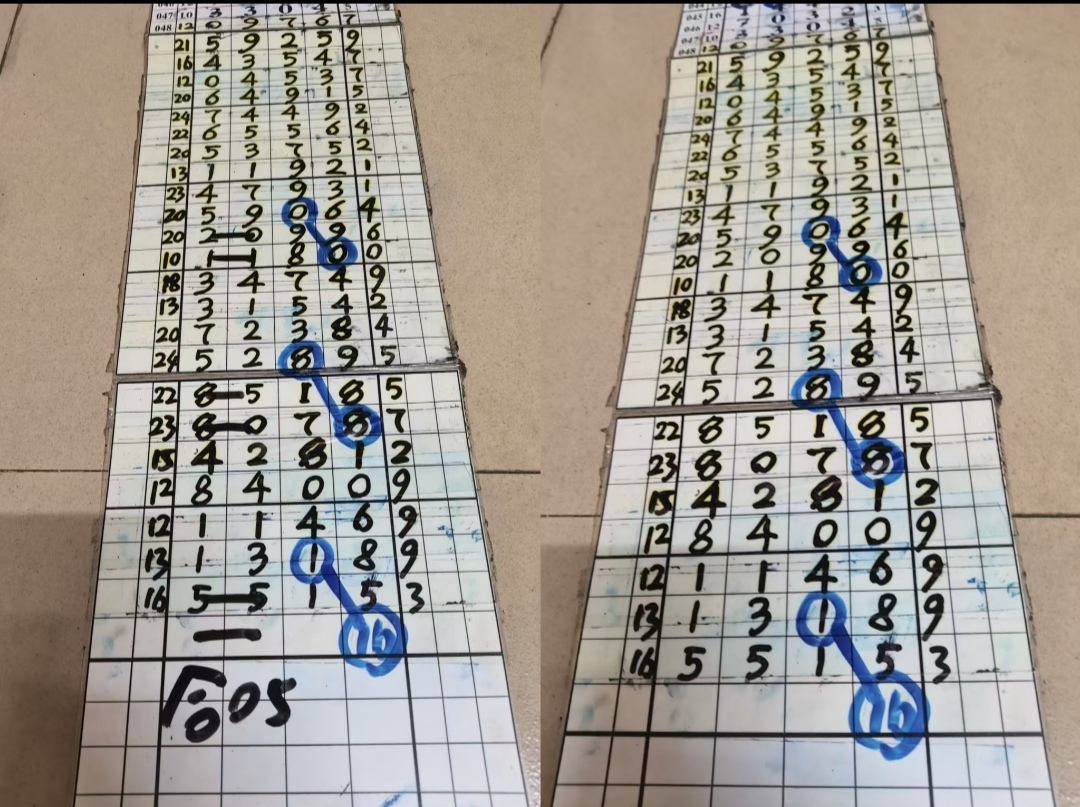 047 10
048 12
21 5 9 2 5 9
16 4 3 5 4 7
12 0 4 5 3 7
20 6 4 9 1 5
24 7 4 4 9 2
22 6 5 5 6 4
20 5 3 7 5 2
13 1 1 9 2 1
23 4 7 9 3 1
20 5 9 0 6 4
20 2 0 9 9 6
10 1 1 8 0 0
18 3 4 7 4 9
13 3 1 5 4 2
20 7 2 3 8 4
24 5 2 8 9 5
22 8 5 1 8 5
23 8 0 7 8 7
15 4 2 8 1 2
12 8 4 0 0 9
12 1 1 4 6 9
13 1 3 1 8 9
16 5 5 1 5 3
16
05
045 16
046 12
047 10
048 12
21 5 9 2 5 9
16 4 3 5 4 7
12 0 4 5 3 7
20 6 4 9 1 5
24 7 4 4 9 2
22 6 5 5 6 4
20 5 3 7 5 2
13 1 1 9 2 1
23 4 7 9 3 1
20 5 9 0 6 4
20 2 0 9 9 6
10 1 1 8 0 0
18 3 4 7 4 9
13 3 1 5 4 2
20 7 2 3 8 4
24 5 2 8 9 5
22 8 5 1 8 5
23 8 0 7 8 7
15 4 2 8 1 2
12 8 4 0 0 9
12 1 1 4 6 9
13 1 3 1 8 9
16 5 5 1 5 3
16